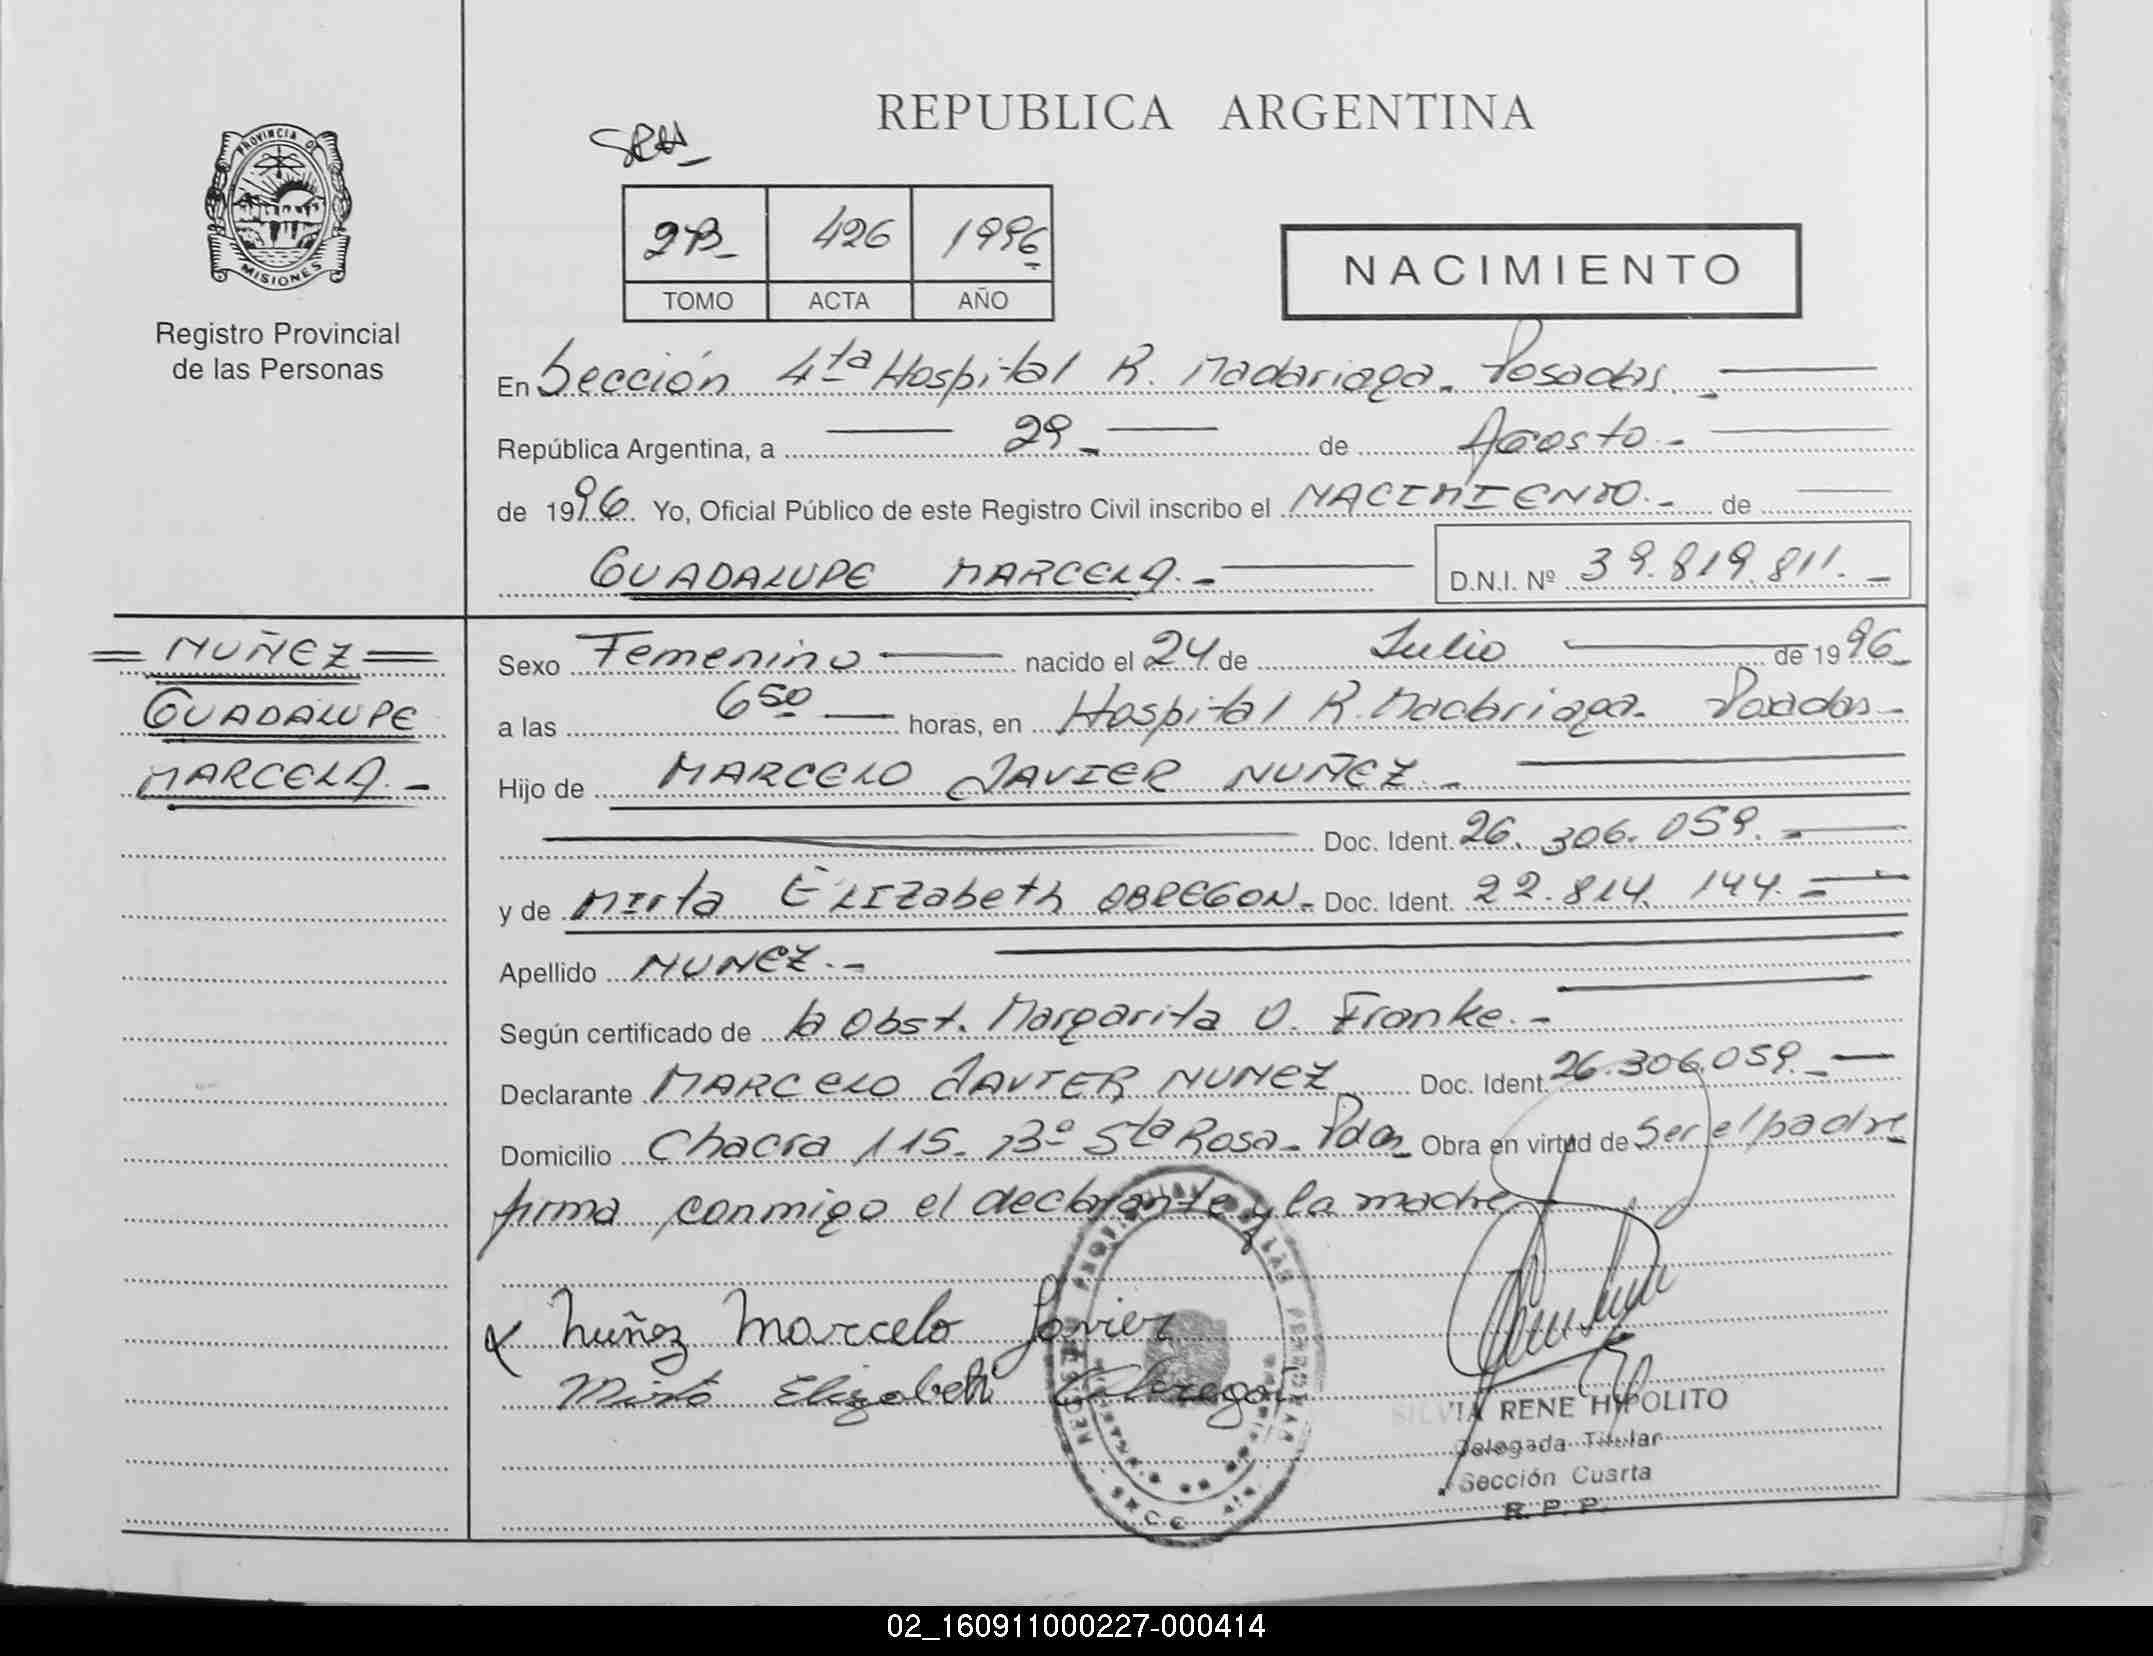 REPUBLICA ARGENTINA
PROVINCIA DE
MISIONES
Registro Provincial
de las Personas
2B_ 426 1996
TOMO ACTA AÑO
NACIMIENTO
En Sección 4ta Hospital R. Madariaga. Posadas.
República Argentina, a 29_ de Agosto.-
de 1996. Yo, Oficial Público de este Registro Civil inscribo el NACIMIENTO.- de
GUADALUPE MARCELA.- D.N.I. Nº 39.819.811.-
=NUÑEZ=
GUADALUPE
MARCELA.-
Sexo Femenino nacido el 24 de Julio de 1996_
a las 6 50 horas, en Hospital R. Madariaga. Posadas-
Hijo de MARCELO JAVIER NUÑEZ.-
Doc. Ident. 26.306.059.-
y de Mirta Elizabeth OBREGON.- Doc. Ident. 22.814.144.-
Apellido NUNEZ.-
Según certificado de la Obst. Margarita O. Franke.-
Declarante MARCELO JAVIER NUNEZ Doc. Ident. 26.306.059.-
Domicilio Chacra 115- Bº Sta Rosa- Pdas_ Obra en virtud de ser el padre
firma conmigo el declarante y la madre
x Nuñez Marcelo Javier
Mirta Elizabeth Obregon
SILVIA RENE HIPOLITO
Delegada Titular
Sección Cuarta
R. P. P.
02_160911000227-000414